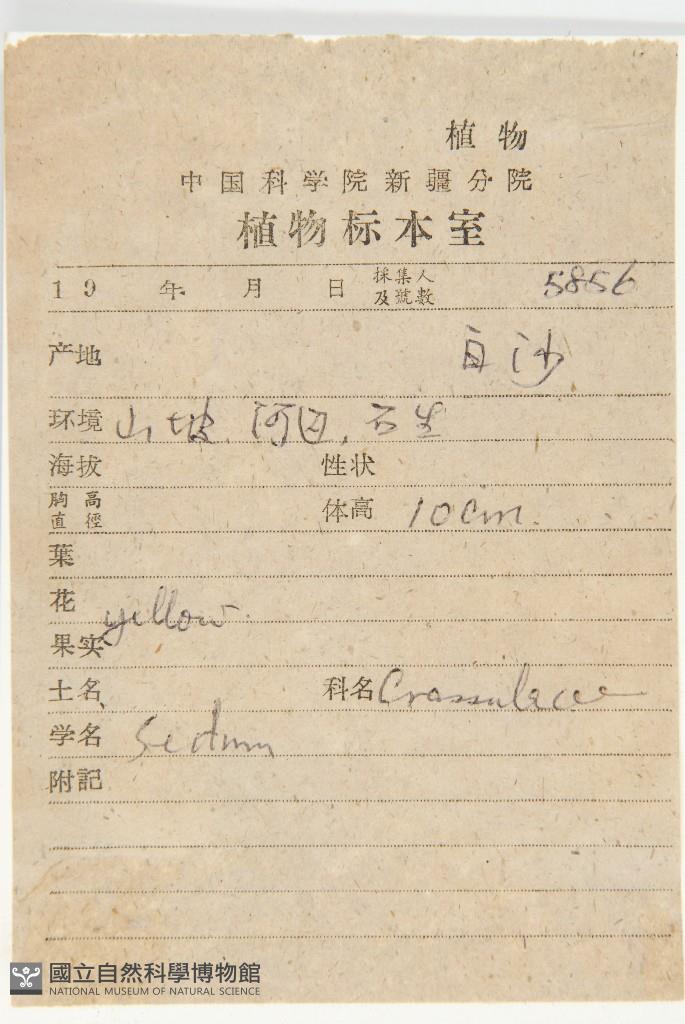 植物
中国科学院新疆分院
植物标本室
19 年 月 日 採集人及號數 5856
产地 白沙
环境 山坡、河旁、石生
海拔 性状
胸高直徑 体高 10cm.
葉
花 yellow
果实
土名 科名 Crassulaceae
学名 Sedum
附記
國立自然科學博物館
NATIONAL MUSEUM OF NATURAL SCIENCE